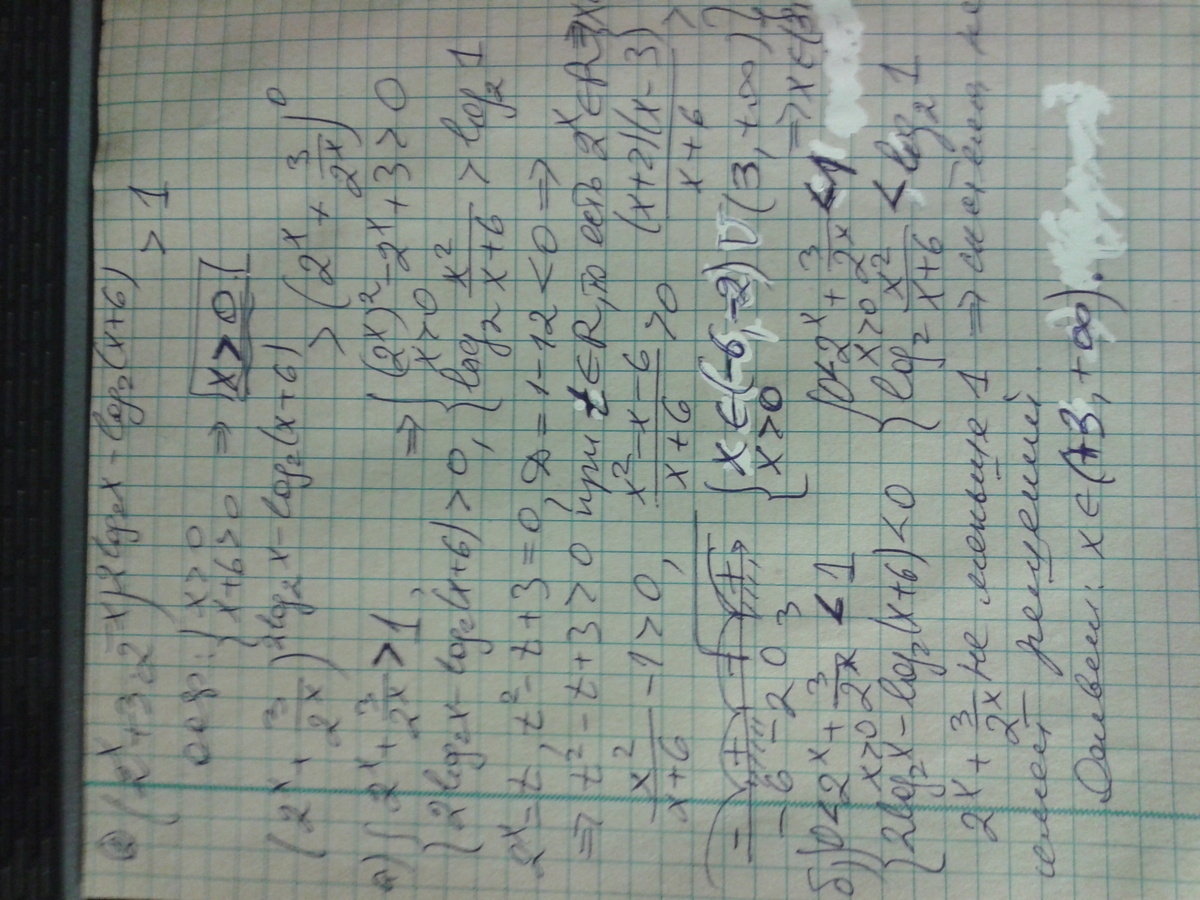 (2^x + 3·2^-x)^2log₂x - log₂(x+6) > 1
ООФ: { x > 0 x+6 > 0 ⇒ x > 0
(2^x + 3/2^x)^2log₂x - log₂(x+6) > (2^x + 3/2^x)^0
а) { 2^x + 3/2^x > 1, 2log₂x - log₂(x+6) > 0, ⇒ { (2^x)² - 2^x + 3 > 0 x > 0 log₂ x²/(x+6) > log₂ 1
2^x = t, t² - t + 3 = 0, D = 1 - 12 < 0 ⇒
⇒ t² - t + 3 > 0 при t ∈ R, то есть 2^x ∈ R
x²/(x+6) - 1 > 0, (x² - x - 6)/(x+6) > 0 (x+2)(x-3)/(x+6) >
- + - + -6 -2 0 3 { x ∈ (-6, -2) ∪ (3, +∞) x > 0 ⇒ x ∈ (3,
б) { 0 < 2^x + 3/2^x < 1 x > 0 2log₂x - log₂(x+6) < 0 { 0 < 2^x + 3/2^x < 1 x > 0 log₂ x²/(x+6) < log₂ 1
2^x + 3/2^x не меньше 1 ⇒ система не
имеет решений.
Ответ: x ∈ (3, +∞).